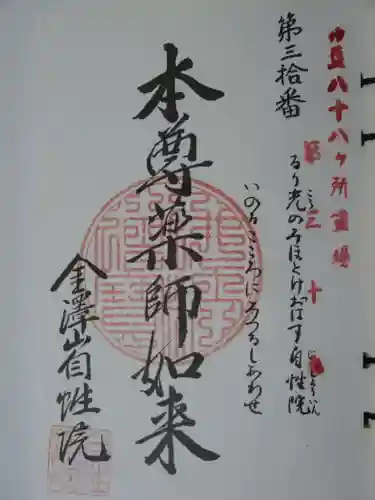 中国八十八ヶ所霊場
第三十
第三拾番
るり光のみほとけおはす自性院
じしょういん
いのるこころにみつるしあわせ
本尊薬師如来
金澤山自性院